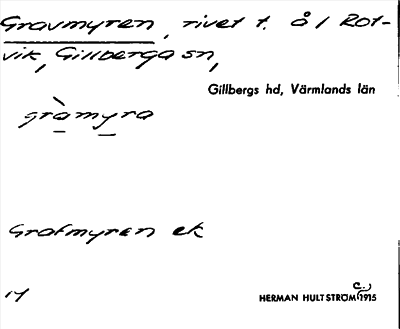 Gravmyren, rivet t. å 1 Rot-
vik, Gillberga sn,
Gillbergs hd, Värmlands län
gràmyra
Grafmyren ek
14
HERMAN HULTSTRÖM c. 1915